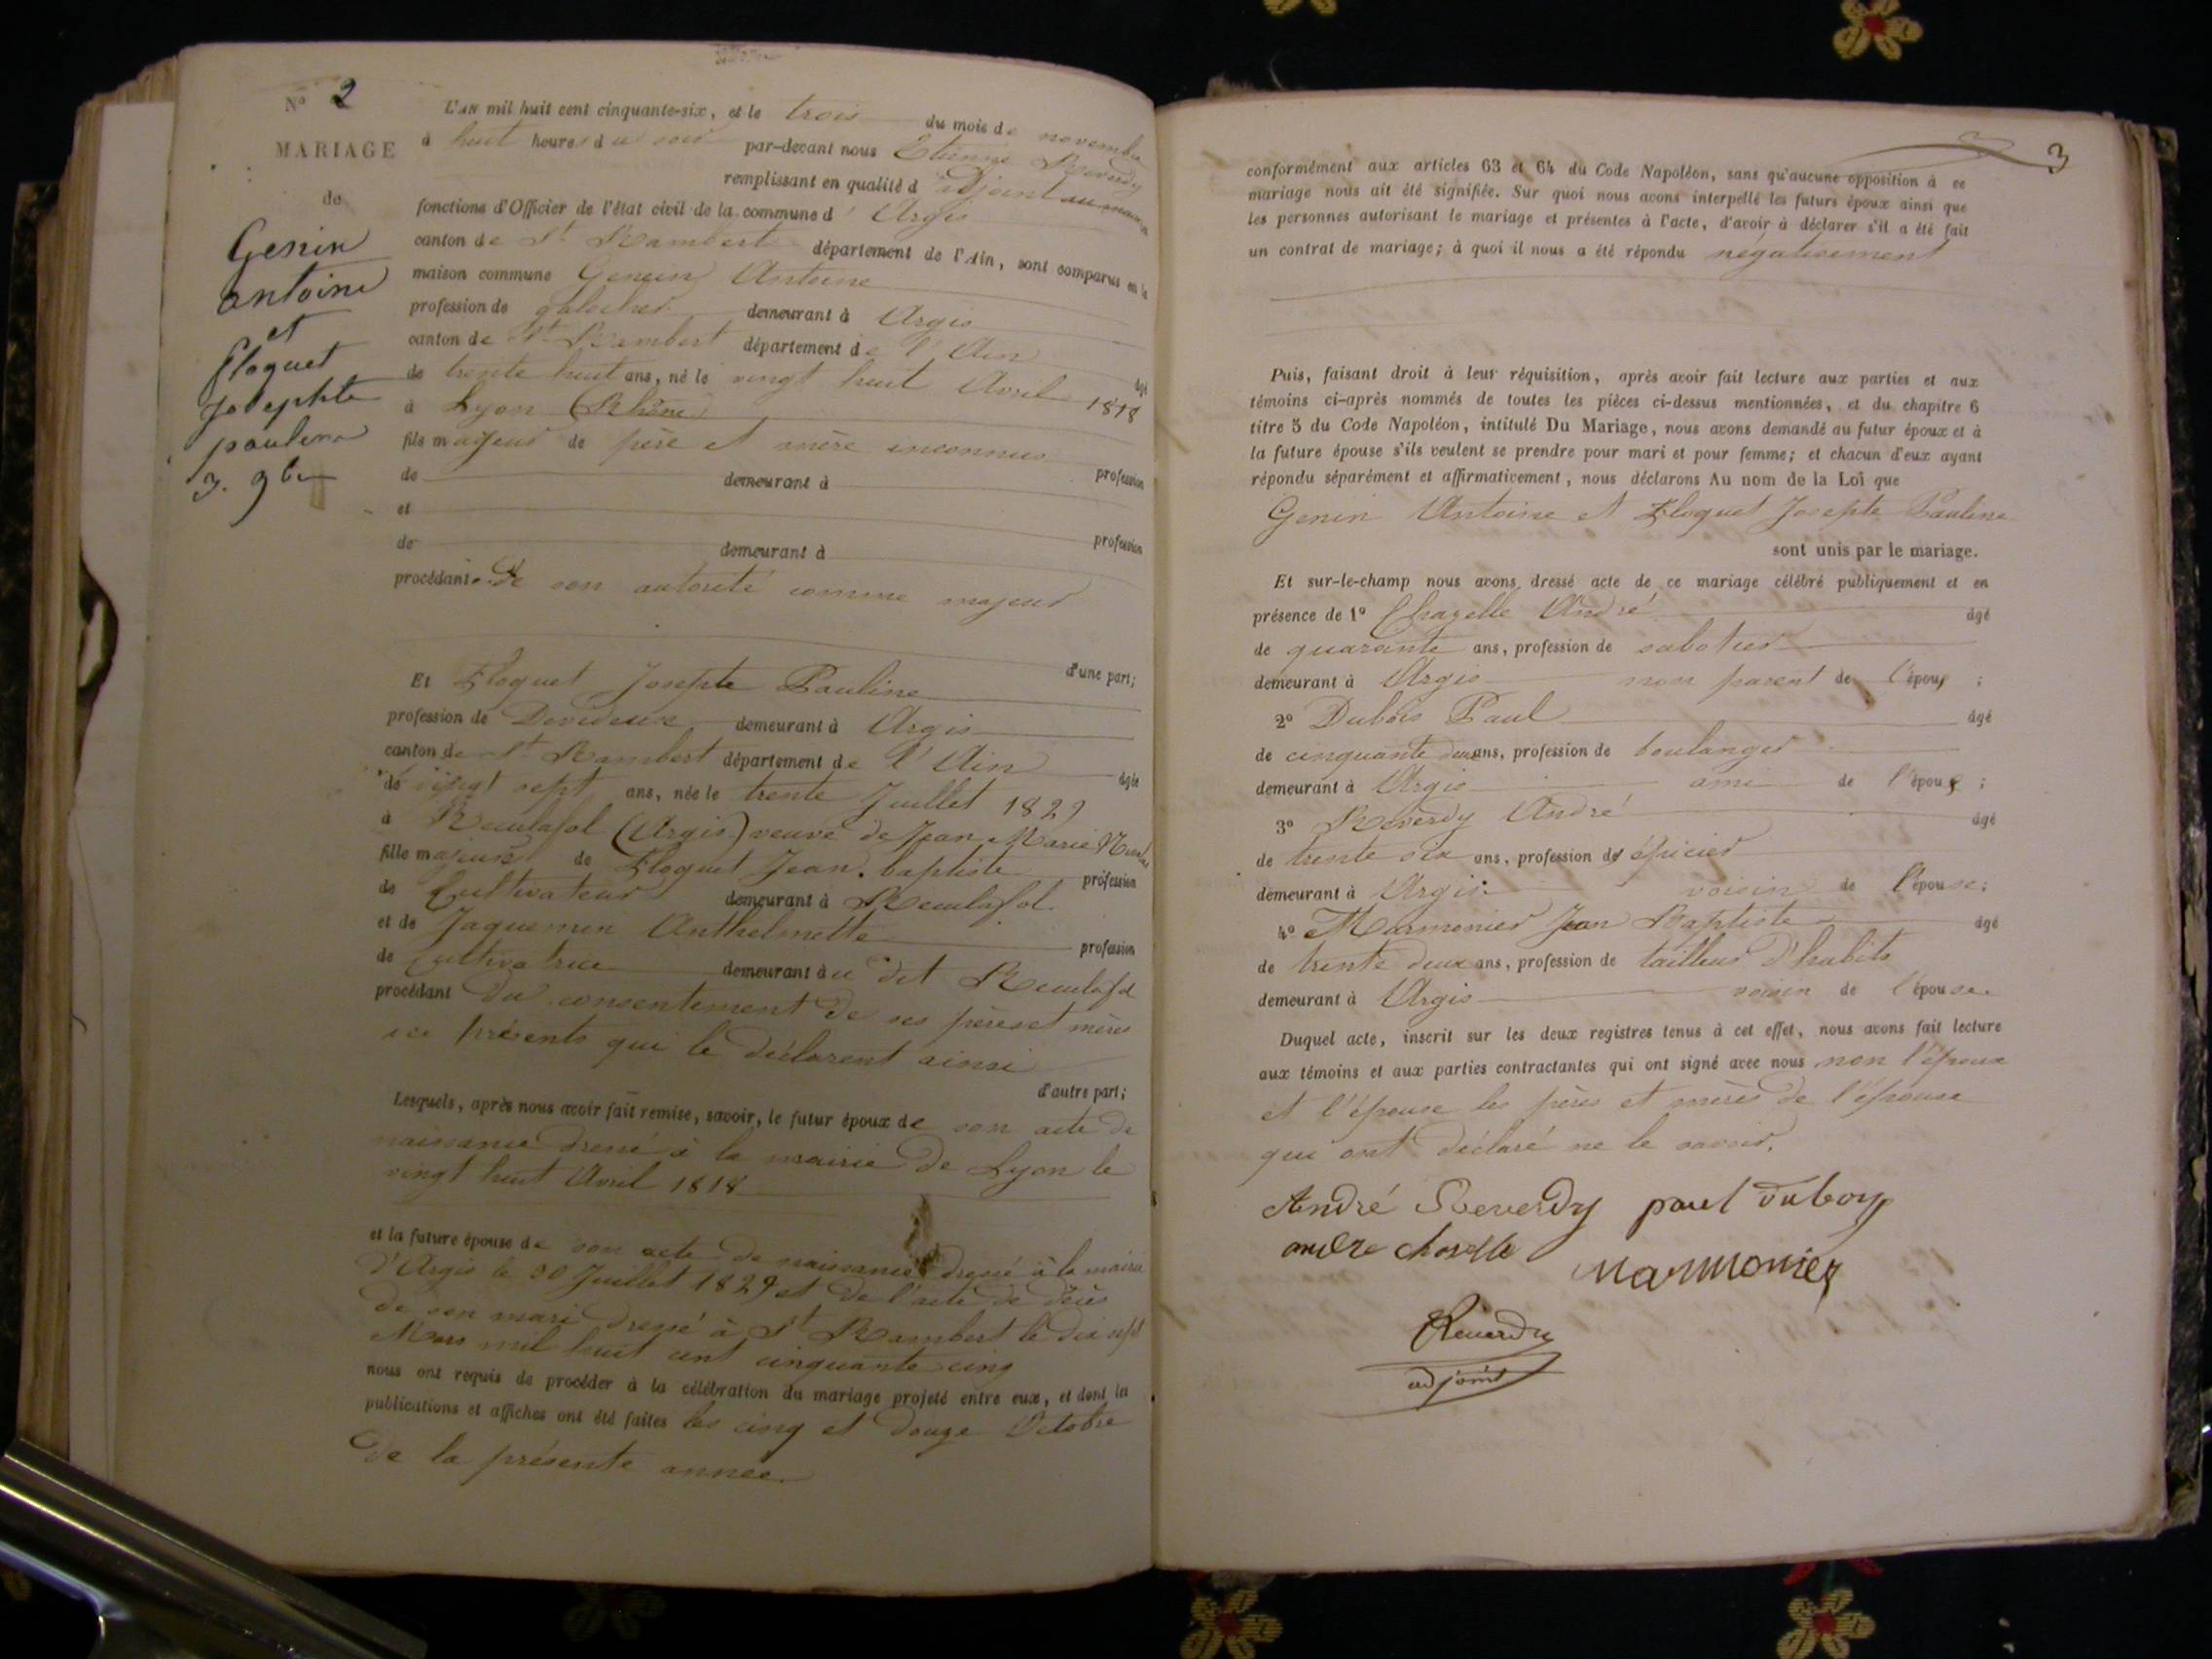 N° 2
MARIAGE
de
Genin
antoine
et
floquet
Josephte
pauline
3. 9bre
L'AN mil huit cent cinquante-six, et le trois du mois de novembre
à huit heures du soir par-devant nous Etienne Reverdy
remplissant en qualité d'adjoint au maire
fonctions d'Officier de l'état civil de la commune d'Argis
canton de St Rambert département de l'Ain, sont comparus en la
maison commune Genin Antoine
profession de galocher demeurant à Argis
canton de St Rambert département de l'Ain âgé
de trente huit ans, né le vingt huit Avril 1818
à Lyon (Rhône)
fils majeur de père et mère inconnus
de demeurant à profession
et
de demeurant à profession
procédant de son autorité comme majeur
d'une part;
Et Floquet Josephte Pauline
profession de Devideuse demeurant à Argis
canton de St Rambert département de l'Ain âgée
de vingt sept ans, née le trente Juillet 1829
à Reculafol (Argis) veuve de Jean Marie
fille majeure de Floquet Jean-baptiste profession
de Cultivateur demeurant à Reculafol.
et de Jaquemin Anthelmette profession
de Cultivatrice demeurant au dit Reculafol
procédant du consentement de ses pères et mères
ici présents qui le déclarent ainsi
d'autre part;
Lesquels, après nous avoir fait remise, savoir, le futur époux de son acte de
naissance dressé à la mairie de Lyon le
vingt huit Avril 1818
et la future épouse de son acte de naissance dressé à la mairie
d'Argis le 30 Juillet 1829 et de l'acte de décès
de son mari dressé à St Rambert le dix sept
Mars mil huit cent cinquante cinq
nous ont requis de procéder à la célébration du mariage projeté entre eux, et dont les
publications et affiches ont été faites les cinq et douze Octobre
de la présente année.
3
conformément aux articles 63 et 64 du Code Napoléon, sans qu'aucune opposition à ce
mariage nous ait été signifiée. Sur quoi nous avons interpellé les futurs époux ainsi que
les personnes autorisant le mariage et présentes à l'acte, d'avoir à déclarer s'il a été fait
un contrat de mariage; à quoi il nous a été répondu négativement
Puis, faisant droit à leur réquisition, après avoir fait lecture aux parties et aux
témoins ci-après nommés de toutes les pièces ci-dessus mentionnées, et du chapitre 6
titre 5 du Code Napoléon, intitulé Du Mariage, nous avons demandé au futur époux et à
la future épouse s'ils veulent se prendre pour mari et pour femme; et chacun d'eux ayant
répondu séparément et affirmativement, nous déclarons Au nom de la Loi que
Genin Antoine et Floquet Josephte Pauline
sont unis par le mariage.
Et sur-le-champ nous avons dressé acte de ce mariage célébré publiquement et en
présence de 1° Chazelle André âgé
de quarante ans, profession de sabotier
demeurant à Argis non parent de l'époux ;
2° Dubois Paul âgé
de cinquante deux ans, profession de boulanger
demeurant à Argis ami de l'époux ;
3° Reverdy André âgé
de trente six ans, profession de épicier
demeurant à Argis voisin de l'épouse;
4° Marmonier Jean Baptiste âgé
de trente deux ans, profession de tailleur d'habits
demeurant à Argis voisin de l'épouse.
Duquel acte, inscrit sur les deux registres tenus à cet effet, nous avons fait lecture
aux témoins et aux parties contractantes qui ont signé avec nous non l'époux
et l'épouse les pères et mères de l'épouse
qui ont déclaré ne le savoir.
André Reverdy paul duboy
andre chaselle
Marmonier
Reverdy
adjoint